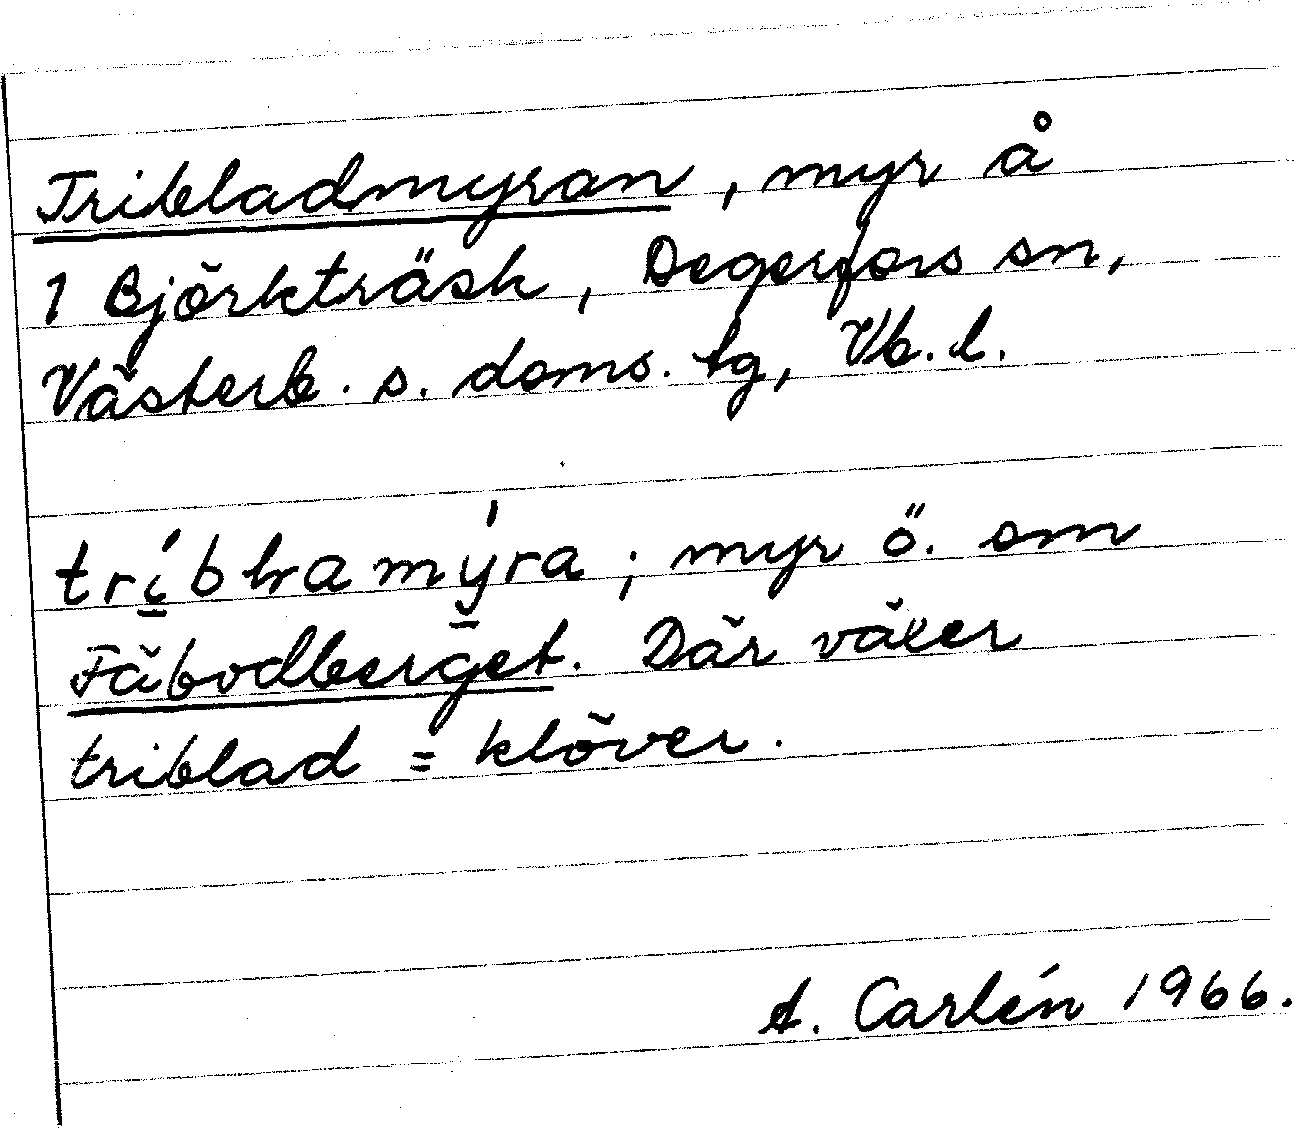 Tribladmyran, myr å
1 Björkträsk, Degerfors sn,
Västerb. s. doms. tg, Vb. l.
myr ö. om
Fäbodberget. Där växer
triblad = klöver.
A. Carlén 1966.